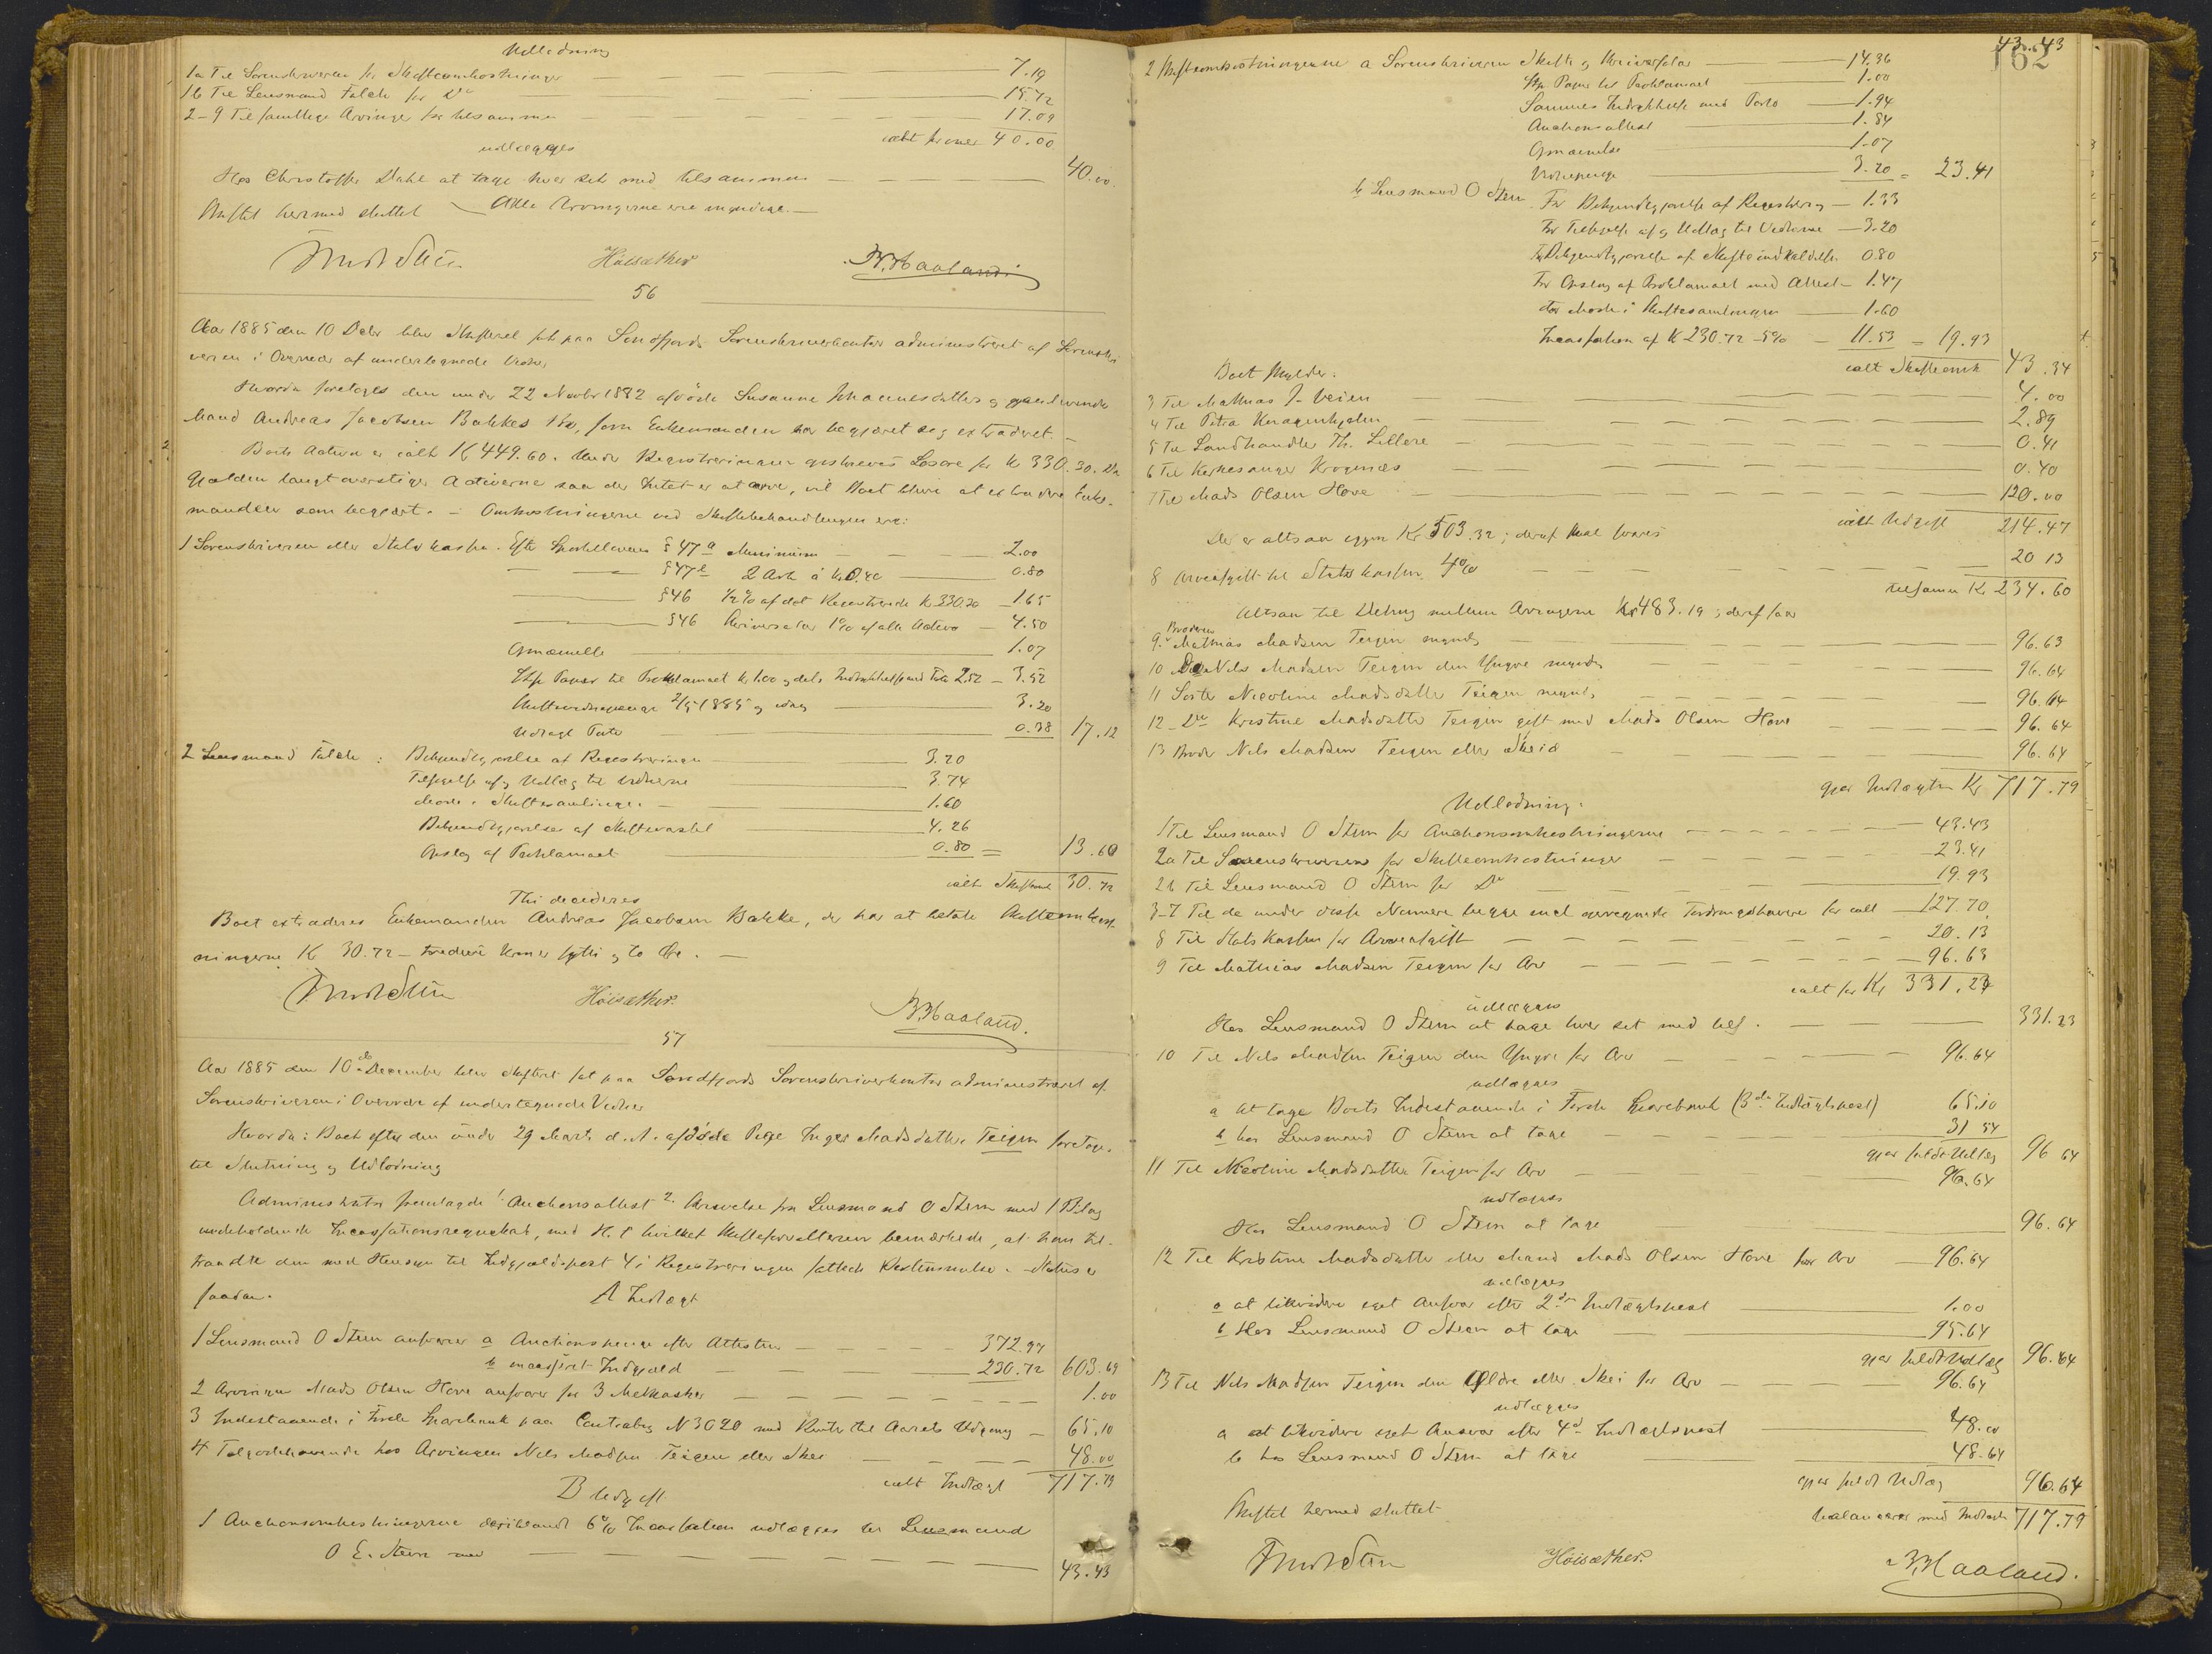 Udlodning
1a Til Sorenskriveren for Skifteomkostninger 7.19
1b Til Lensmand Falch for Do 15.72
2-9 Til samtlige Arvinge for tilsammen 17.09
ialt kroner 40.00
udlægges
Hos Christoffer Dahl at tage hver sit med tilsammen 40.00.
Skiftet hermed sluttet Alle Arvingerne ere myndige.
Høisæther N. Haaland
56
Aar 1885 den 10 Decbr blev Skifteret sat paa Søndfjords Sorenskriverkontor administreret af Sorenskri
veren i Overvær af undertegnede Vidner
Hvorda foretoges den under 22 Novbr 1882 afdøde Susanne Johannesdatters og gjenlevende
Mand Andreas Jacobsen Bakkes Bo, som Enkemanden har begjæret sig extraderet.
Boets Activa er ialt K 449.60. Under Registreringen opskreves Løsøre for Kr 330.30. Da
Gjælden langt overstiger Activerne saa der Intet er at arve, vil Boet blive at extradere Enke-
manden som begjært. Omkostningerne ved Skiftebehandlingen ere:
1 Sorenskriveren eller Statskassen. Efter Sportelloven § 47 a Minimum 2.00
§ 47 e 2 Ark à Kr 0.40 0.80
§ 46 1/2 % af det Registrerede Kr 330.30 1.65
§ 46 Skriversalær 1 % af alle Activa 4.50
Gjennemelse 1.07
Stpl. Papir til Proklamaet Kr 1.00 og dets Indrykkelse med Porto 2.52 3.52
Skiftevidnepenge 2/5 1885 og idag 3.20
Udlagt Porto 0.38 17.12
2 Lensmand Falch: Bekjendtgjørelse af Registreringen 3.20
Tilsigelse af og Udlæg til Vidnerne 3.74
Møde i Skiftesamlingen 1.60
Bekjendtgjørelser af Skiftevarsel 4.26
Opslag af Proklamaet 0.80 = 13.60
ialt Skifteomk 30.72
Thi decideres
Boet extraderes Enkemanden Andreas Jacobsen Bakke, der har at betale Skifteomkost-
ningerne Kr 30.72 - tredive Kroner sytti og to Øre.
Høisæther. N. Haaland.
57
Aar 1885 den 10de December blev Skifteret sat paa Søndfjords Sorenskriverkontor administreret af
Sorenskriveren i Overvær af undertegnede Vidner
Hvorda: Boet efter den under 29 Marts d.A. afdøde Pige Inger Madsdatter Teigen foretoges
til Slutning og Udlodning
Administrator fremlagde 1. Auctionsattest 2. Skrivelse fra Lensmand O Steen med 1 Bilag
indeholdende Incassationsregnskab, med H.t. hvilket Skifteforvalteren bemærkede, at han til-
traadte den med Hensyn til Indgjældspost 4 i Registreringen fattede Bestemmelse. - Status er
saadan.
A Indtægt
1 Lensmand O Steen ansvarer a Auctionspenge efter Attesten 372.97
b incasseret Indgjæld 230.72 603.69
2 Arvingen Mads Olsen Hove ansvarer for 3 Melkasker 1.00
3 Indestaaende i Førde Sparebank paa Contrabog N 3020 med Renter til Aarets Udgang 65.10
4 Tilgodehavende hos Arvingen Nils Madsen Teigen eller Skei 48.00
ialt Indtægt 717.79
B Udgift
1 Auctionsomkostningerne deriblandt 6 % Incassation udlægges til Lensmand
O E. Steen med 43.43
43.43
162
2 Skifteomkostningerne a Sorenskriveren Skifte og Skriversalær 14.36
Stp. Papir til Proklamaet 1.00
Sammes Indrykkelse med Porto 1.94
Auctionsattest 1.84
Gjennemelse 1.07
Vidnepenge 3.20 = 23.41
b Lensmand O Steen. For Bekjendtgjørelse af Registrering 1.33
For Tilsigelse af og Udlæg til Vidnerne 3.20
For Bekjendtgjørelse af Skifteindkaldelse 0.80
For Opslag af Proklamaet med Attest 1.47
For Møde i Skiftesamlingen 1.60
Incassation af K 230.72 - 5 % 11.53 = 19.93
ialt Skifteomk 43.34
Boet skylder:
3 Til Mathias J. Veien 4.00
4 Til Petra Kragenhjelm 2.89
5 Til Landhandler Th. Lillere 0.41
6 Til Kirkesanger Krognæs 0.40
7 Til Mads Olsen Hove 120.00
ialt Udgift 214.47
Der er altsaa igjen Kr 503.32; deraf skal svares
8 Arveafgift til Statskassen 4 % 20 13
tilsammen Kr 234.60
Altsaa til Deling mellem Arvingerne Kr 483.19; deraf faar
9. Broderen Mathias Madsen Teigen myndig 96.63
10 Do Nils Madsen Teigen den Yngre myndig 96.64
11 Søster Nicoline Madsdatter Teigen myndig 96.64
12 Do Kristine Madsdatter Teigen gift med Mads Olsen Hove 96.64
13 Broder Nils Madsen Teigen eller Skeid 96.64
gjør Indtægten Kr 717.79
Udlodning.
1 Til Lensmand O Steen for Auctionsomkostningerne 43.43
2a Til Sorenskriveren for Skifteomkostninger 23.41
2b Til Lensmand O Steen for Do 19.93
3-7 Til de under disse Numere begge incl opregnede Fordringshavere for ialt 127.70
8 Til Statskassen for Arveafgift 20.13
9 Til Mathias Madsen Teigen for Arv 96.63
ialt for Kr 331.23
udlægges
Hos Lensmand O Steen at tage hver sit med tils. 331.23
10 Til Nils Madsen Teigen den Yngre for Arv 96.64
udlægges
a At tage Boets Indestaaende i Førde Sparebank (3die Indtægtspost) 65.10
b hos Lensmand O Steen at tage 31 54
gjør fuldt Udlæg 96 64
11 Til Nicoline Madsdatter Teigen for Arv 96.64
udlægges
Hos Lensmand O Steen at tage 96.64
12 Til Kristine Madsdatter eller Mand Mads Olsen Hove for Arv 96.64
udlægges
a at likvidere eget Ansvar efter 2den Indtægtspost 1.00
b Hos Lensmand O Steen at tage 95.64
gjør fuldt Udlæg 96.64
13 Til Nils Madsen Teigen den Ældre eller Skei for Arv 96.64
udlægges
a at likvidere eget Ansvar efter 4de Indtægtspost 48.00
b hos Lensmand O Steen at tage 48.64
gjør fuldt Udlæg 96.64
Skiftet hermed sluttet
balancerer med Indtægt 717.79
Høisæther. N. Haaland.